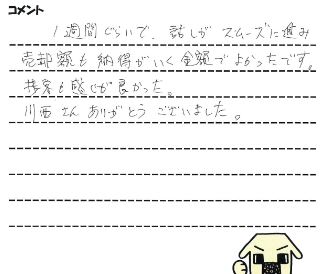 コメント
1週間ぐらいで、話しが スムーズに進み
売却額も 納得がいく金額でよかったです。
接客も感じが良かった。
川西さん ありがとうございました。